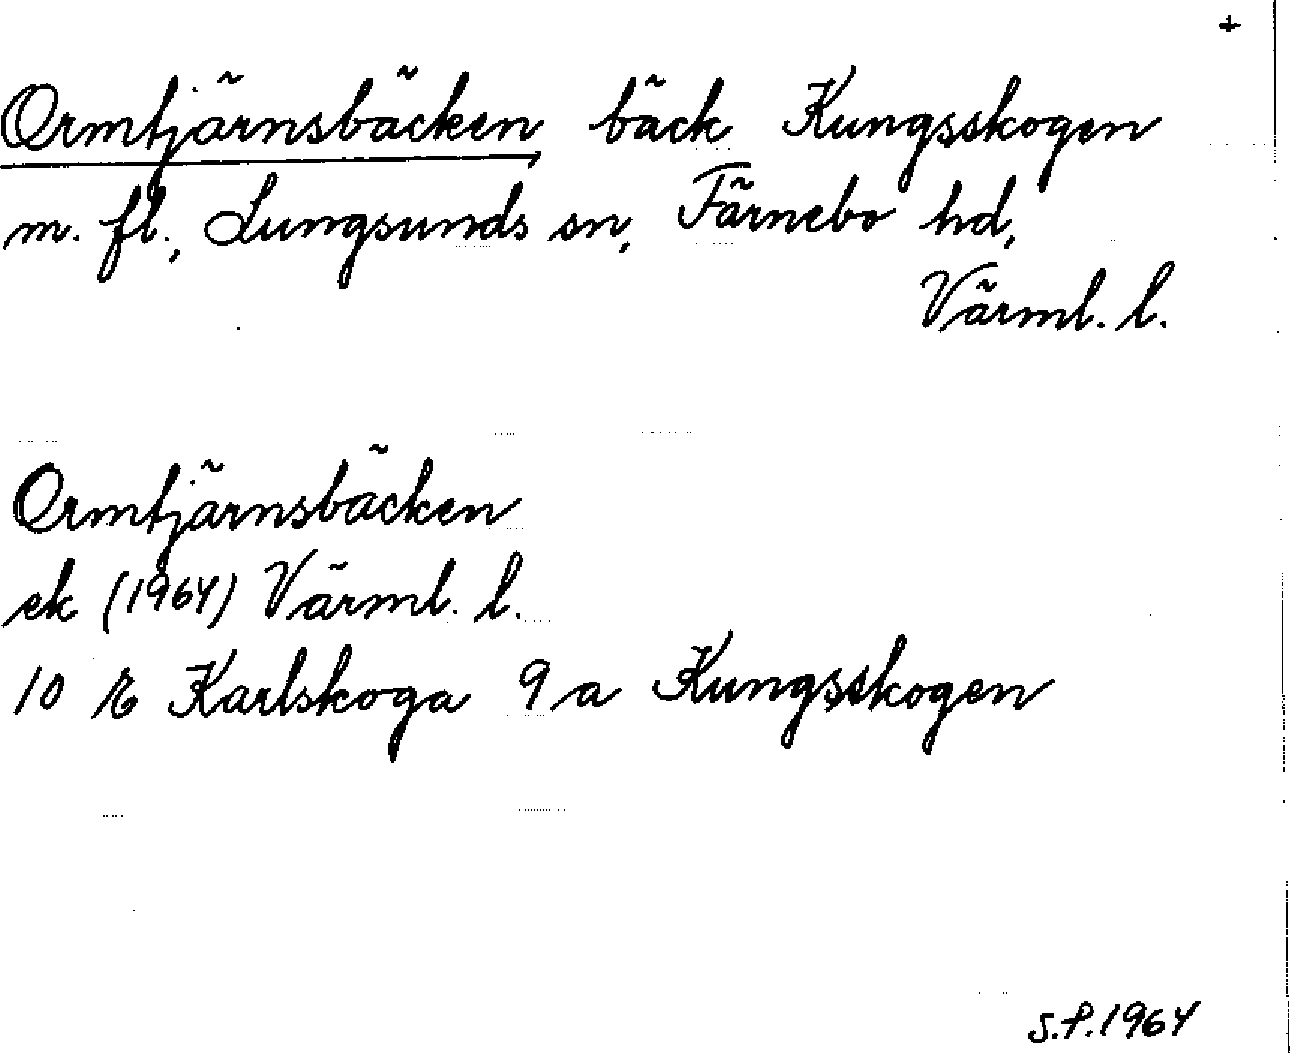 +
Ormtjärnsbäcken, bäck Kungsskogen
m. fl., Lungsunds sn, Färnebo hd,
Värml. l.
Ormtjärnsbäcken
ek (1964) Värml. l.
10 E Karlskoga 9 a Kungsskogen
S.P. 1964